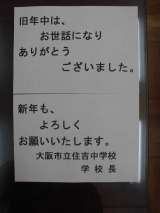 旧年中は、
お世話になり
ありがとう
ございました。
新年も、
よろしく
お願いいたします。
大阪市立住吉中学校
学校長